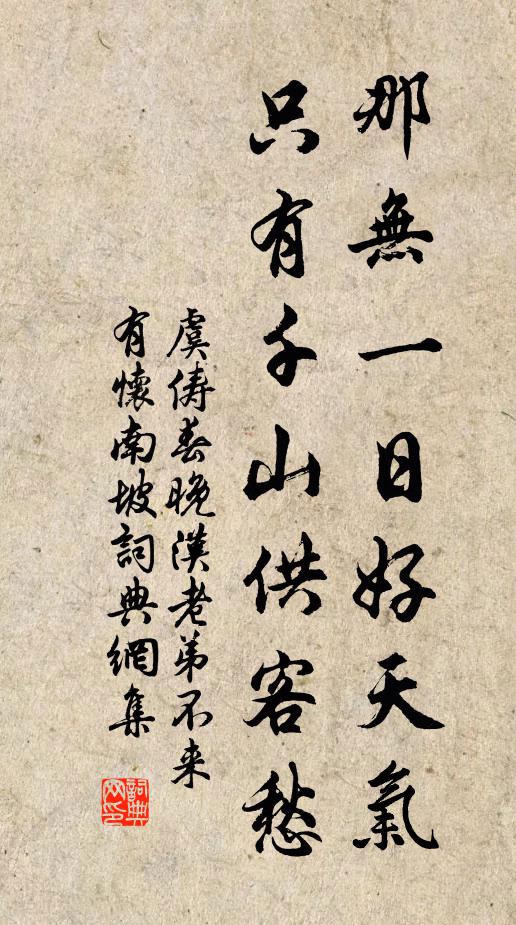 那無一日好天氣
只有千山供客愁
虞儔春晚漢老弟不来
有懷南坡詞典網集
詞典网印